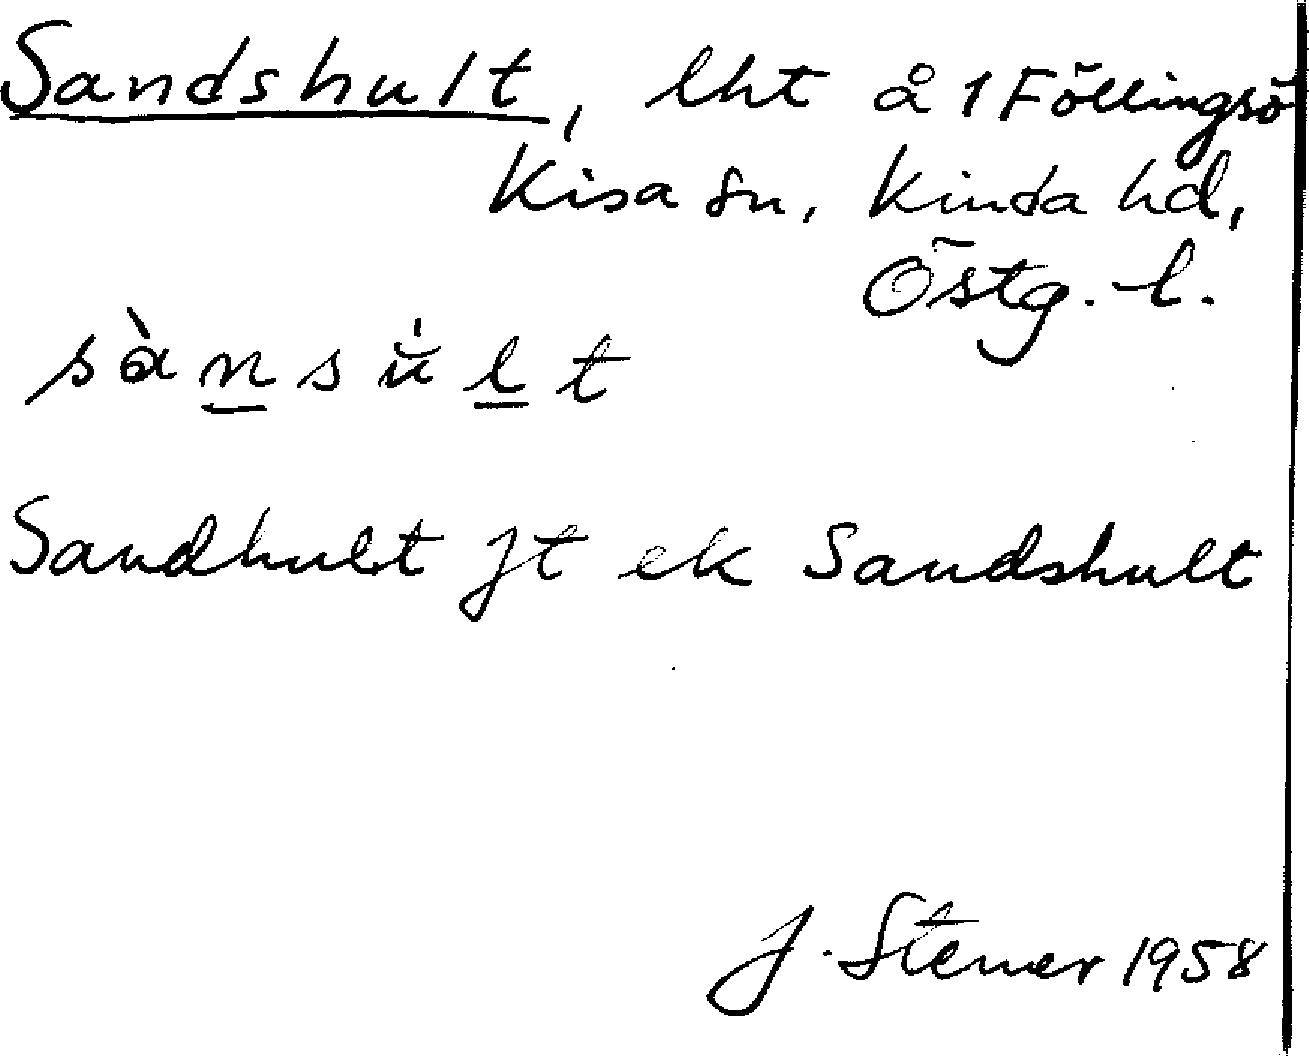 Sandshult, lht å 1 Föllingsö
Kisa sn, Kinda hd,
Östg. l.
sànsu̇lt
Sandhult jt ek Sandshult
J. Stener 1958